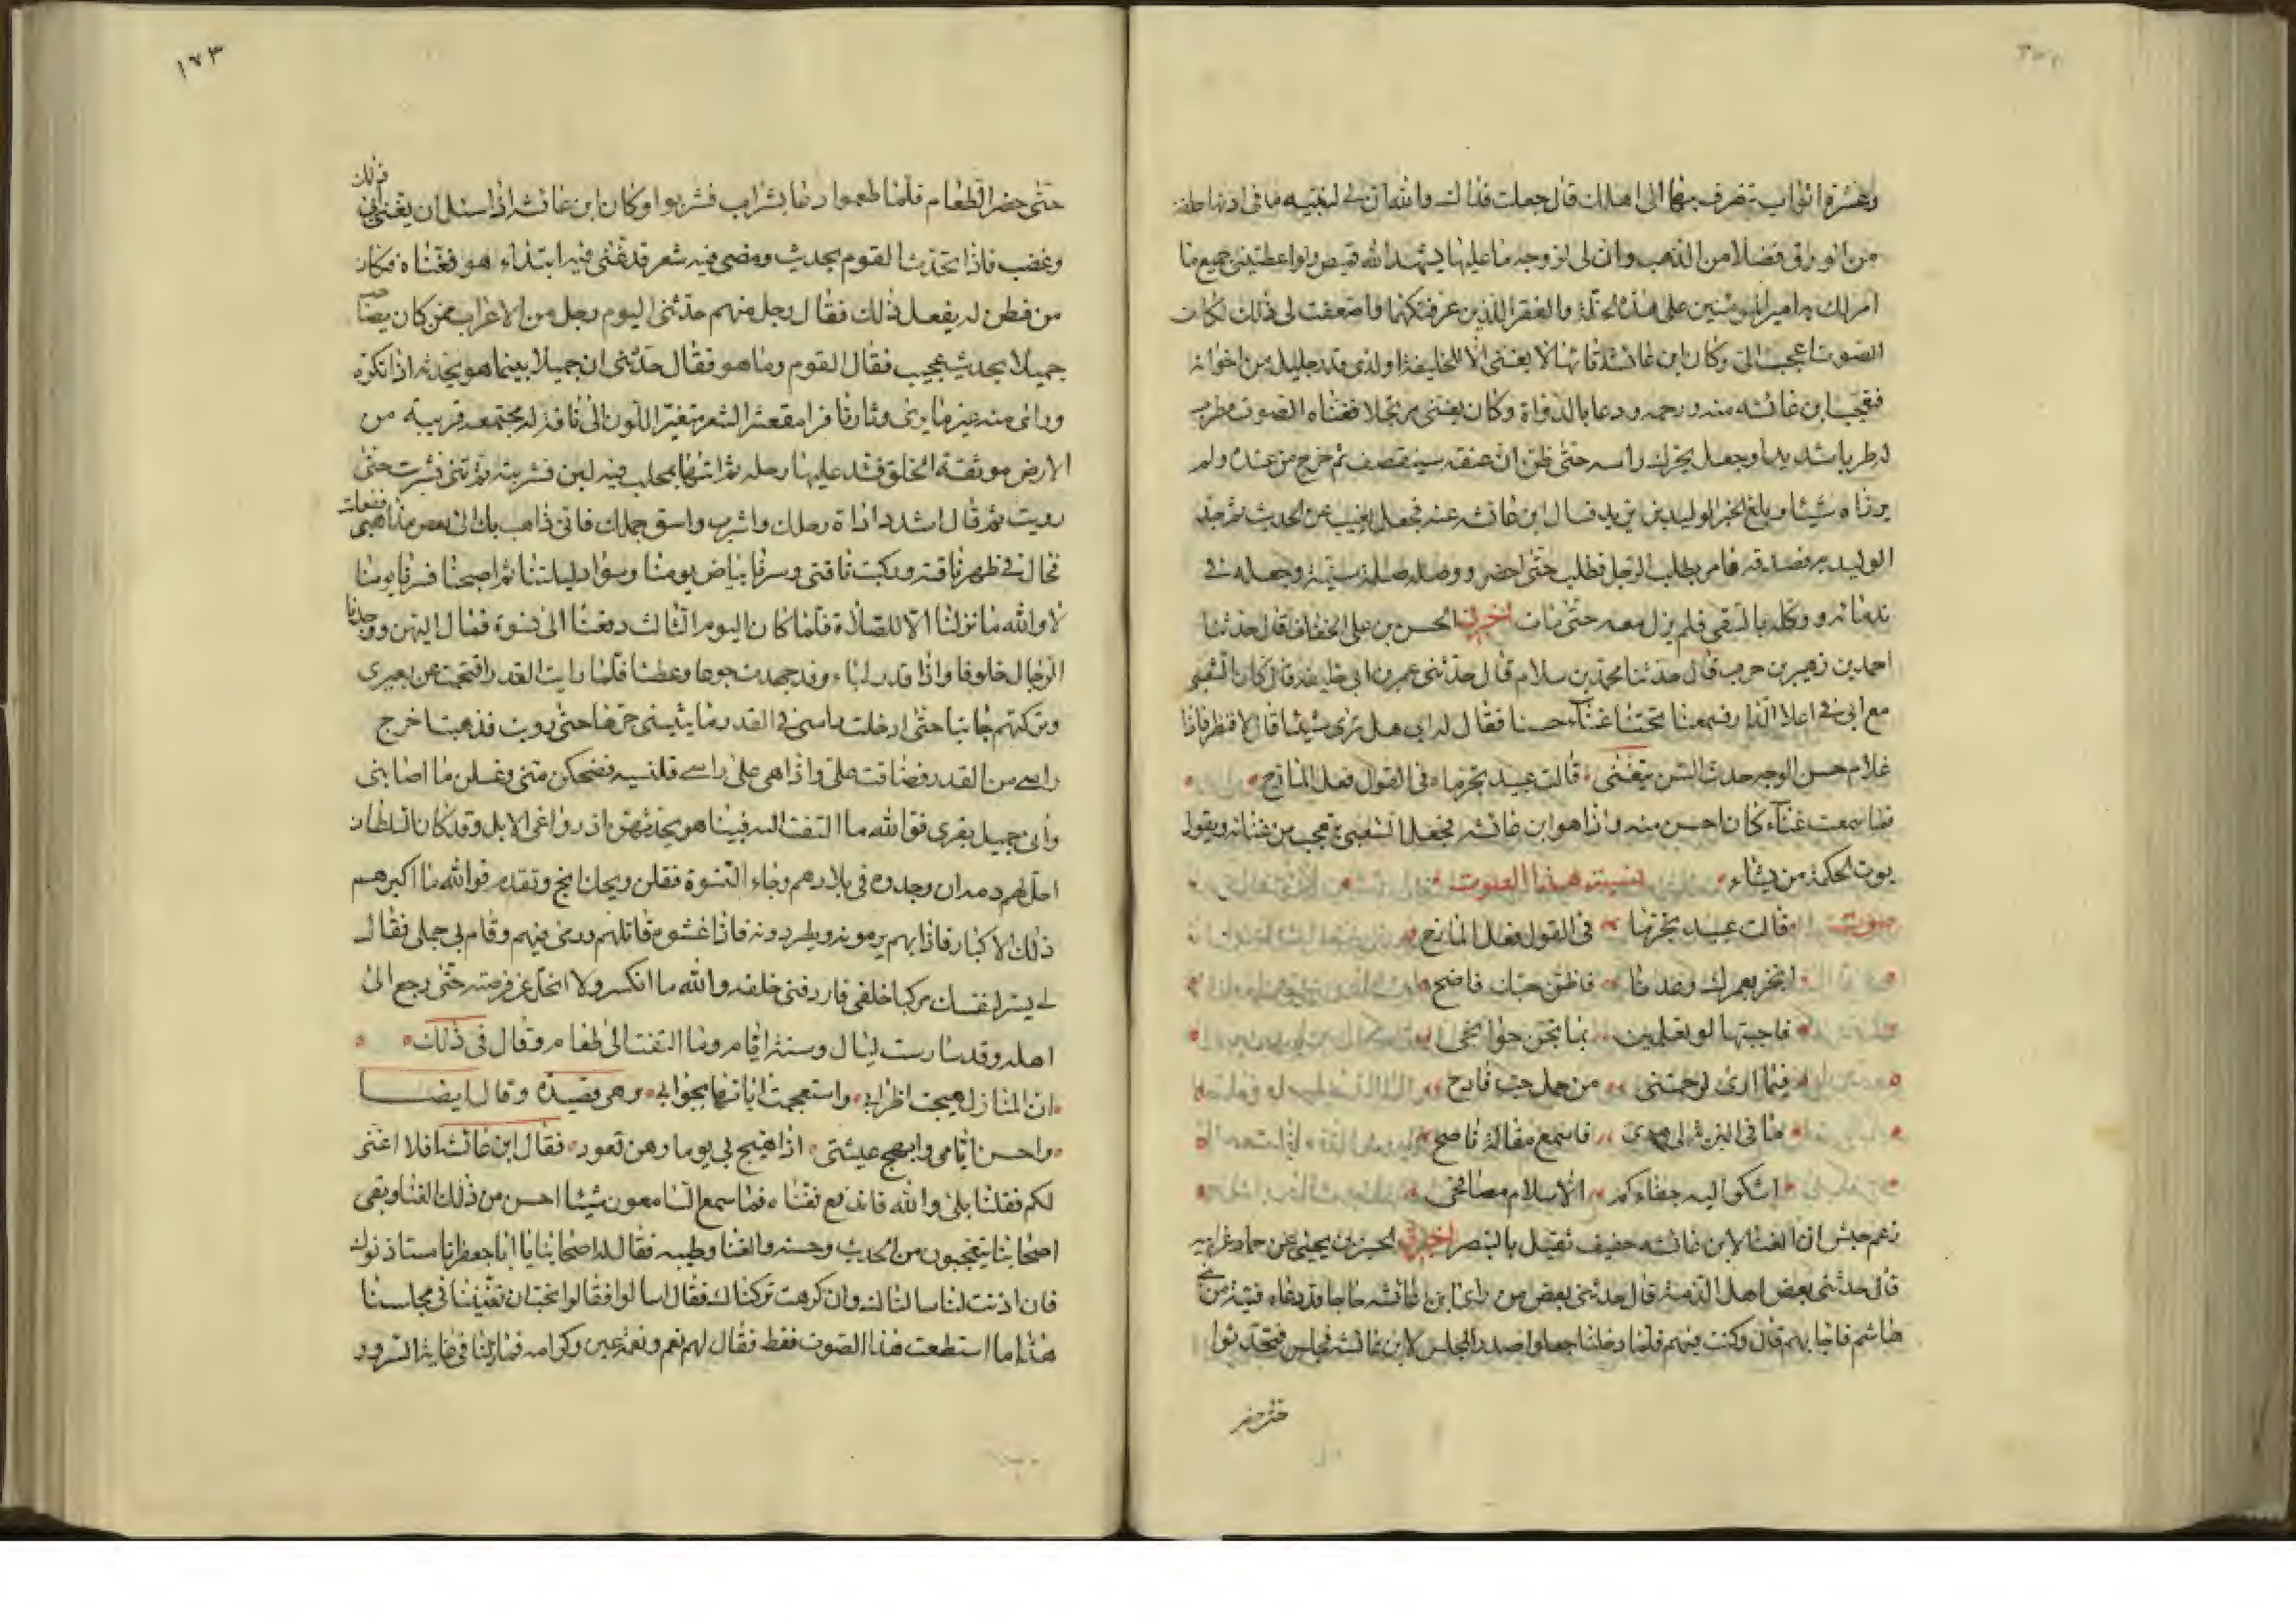 وعشرة اثواب تنصرف بها الى اهلك قال جعلت فداك والله ان لى لبنيه ما فى اذنها حلقة
من الورق فضلا من الذهب وان لى زوجة ما عليها يشهد الله قميص ولو اعطيتنى جميع ما
امر لك به امير المؤمنين على هذه الخلة والفقر الذين عرفتكهما واضعفت لى ذلك لكان
الصوت اعجب الى وكان ابن عائشة تائها لا يغنى الا لخليفة او لذى قدر جليل من اخوانه
فتعجب ابن عائشه منه ورحمه ودعا بالدواة وكان يغنى مرتجلا فغناه الصوت فطرب
له طربا شديدا وجعل يحرك راسه حتى ظن ان عنقه سينقصف ثم خرج من عنده ولم
يرزاه شيئا وبلغ الخبر الوليد بن يزيد فسال ابن عائشه عنه فجعل يغيب عن الحديث ثم جد
الوليد به فصدقه فامر بطلب الرجل فطلب حتى احضر ووصله صلة سنية وجعله فى
ندمائه ووكله بالسقى فلم يزل معه حتى مات اخبرنى الحسن بن على الخفاف قال حدثنا
احمد بن زهير بن حرب قال حدثنا محمد بن سلام قال حدثنى عمر بن ابى خليفه قال كان الشعبى
مع ابى فى اعلا الدار فسمعنا تحتنا غناء حسنا فقال له ابى هل ترى شيئا قال لا فنظر فاذا
غلام حسن الوجه حدث السن يتغنى قالت عبيد تجرما فى القول فعل المازح
فما سمعت غناء كان احسن منه واذا هو ابن عائشه فجعل الشعبى يتعجب من غنائه ويقول
يوت الحكمة من يشاء نسبة هذا الصوت
صوت قالت عبيد تجرما فى القول فعل المازح
انجز بعمرك وعدنا فاظن حبك فاضح
فاجبتها لو تعلمين بما تجن جوانحى
فيما ارى لرحمتنى من حمل حب فادح
ما فى البرية لى هوى فاسمع مقالة ناصح
اشكو اليه جفاءكم الا سلام مصافحى
زعم حبش ان الغنا لابن عائشه خفيف ثقيل بالبنصر اخبرنى الحسين بن يحيى عن حماد عن ابيه
قال حدثنى بعض اهل المدينة قال حدثنى بعض من راى ابن عائشه حاجا وقد دعاه فتية من بنى
هاشم فاجابهم قال وكنت فيهم فلما دخلنا جعلوا صدر المجلس لابن عائشه فجلس فتحدثوا
حتى حضر
١٧٣
حتى حضر الطعام فلما طعموا دعا بشراب فشربوا وكان ابن عائشه اذا سئل ان يغنى ابى ذلك
وغضب فاذا تحدث القوم بحديث ومضى فيه شعر قد غنى فيه ابتداء هو فغناه فكان
من فطن له يفعل ذلك فقال رجل منهم حدثنى اليوم رجل من الاعراب ممن كان يصاحب
جميلا بحديث عجيب فقال القوم وما هو فقال حدثنى ان جميلا بينما هو يحدثه اذ انكره
وراى منه غير ما يرى وثار نافرا مقعشر الشعر متغير اللون الى ناقة له مجتمعه قريبه من
الارض موثقة الخلق فشد عليها رحله ثم اتاها بمحلب فيه لبن فشربته ثم ثنى فشربت حتى
رويت ثم قال اشدد اداة رحلك واشرب واسق جملك فانى ذاهب بك الى بعض مذاهبى ففعلت
فجال فى ظهر ناقته وركبت ناقتى وسرنا بياض يومنا وسواد ليلتنا ثم اصبحنا فسرنا يومنا
لا والله ما نزلنا الا للصلاة فلما كان اليوم الثالث دفعنا الى نسوة فمال اليهن ووجدنا
الرجال خلوفا واذا قدر لبا وقد جهدت جوعا وعطشا فلما رايت القدر اقتحمت عن بعيرى
وتركتهم جانبا حتى ادخلت راسى فى القدر ما يثنينى حرها حتى رويت فذهبت اخرج
راسى من القدر فضاقت على واذا هى على راسى قلنسيه فضحكن منى وغسلن ما اصابنى
واتى جميل بقرى فوالله ما التفت اليه فبينا هو يحدثهن اذ رواغى الابل وقد كان السلطان
احل لهم دمه ان وجدوه فى بلادهم وجاء النسوة فقلن ويحك انج وتقدم فوالله ما اكبرهم
ذلك الاكبار فاذا بهم يرمونه ويطردونه فاذا غشوه قاتلهم ورمى فيهم وقام بى جملى فقال
لى يسر لنفسك مركبا خلفى فاردفنى خلفه والله ما انكسر ولا انحل عن فرصته حتى رجع الى
اهله وقد سار ست ليال وستة ايام وما التفت الى طعام وقال فى ذلك
ان المنازل هيجت اطرابى واستعجمت اياتها بجوابى وهى قصيدة وقال ايضا
واحسن ايامى وابهج عيشتى اذا هيج بى يوما وهن قعود فقال ابن عائشه افلا اغنى
لكم فقلنا بلى والله فاندفع فغناه فما سمع السامعون شيئا احسن من ذلك الغنا وبقى
اصحابنا يتعجبون من الحديث وحسنه والغنا وطيبه فقال له اصحابنا يا ابا جعفر انا مستاذنوك
فان اذنت لنا سالناك وان كرهت تركناك فقال سالوا فقالوا نحب ان تغنينا فى مجلسنا
هذا ما استطعت هذا الصوت فقط فقال لهم نعم ونعمة عين وكرامه فما زلنا فى غاية السرور